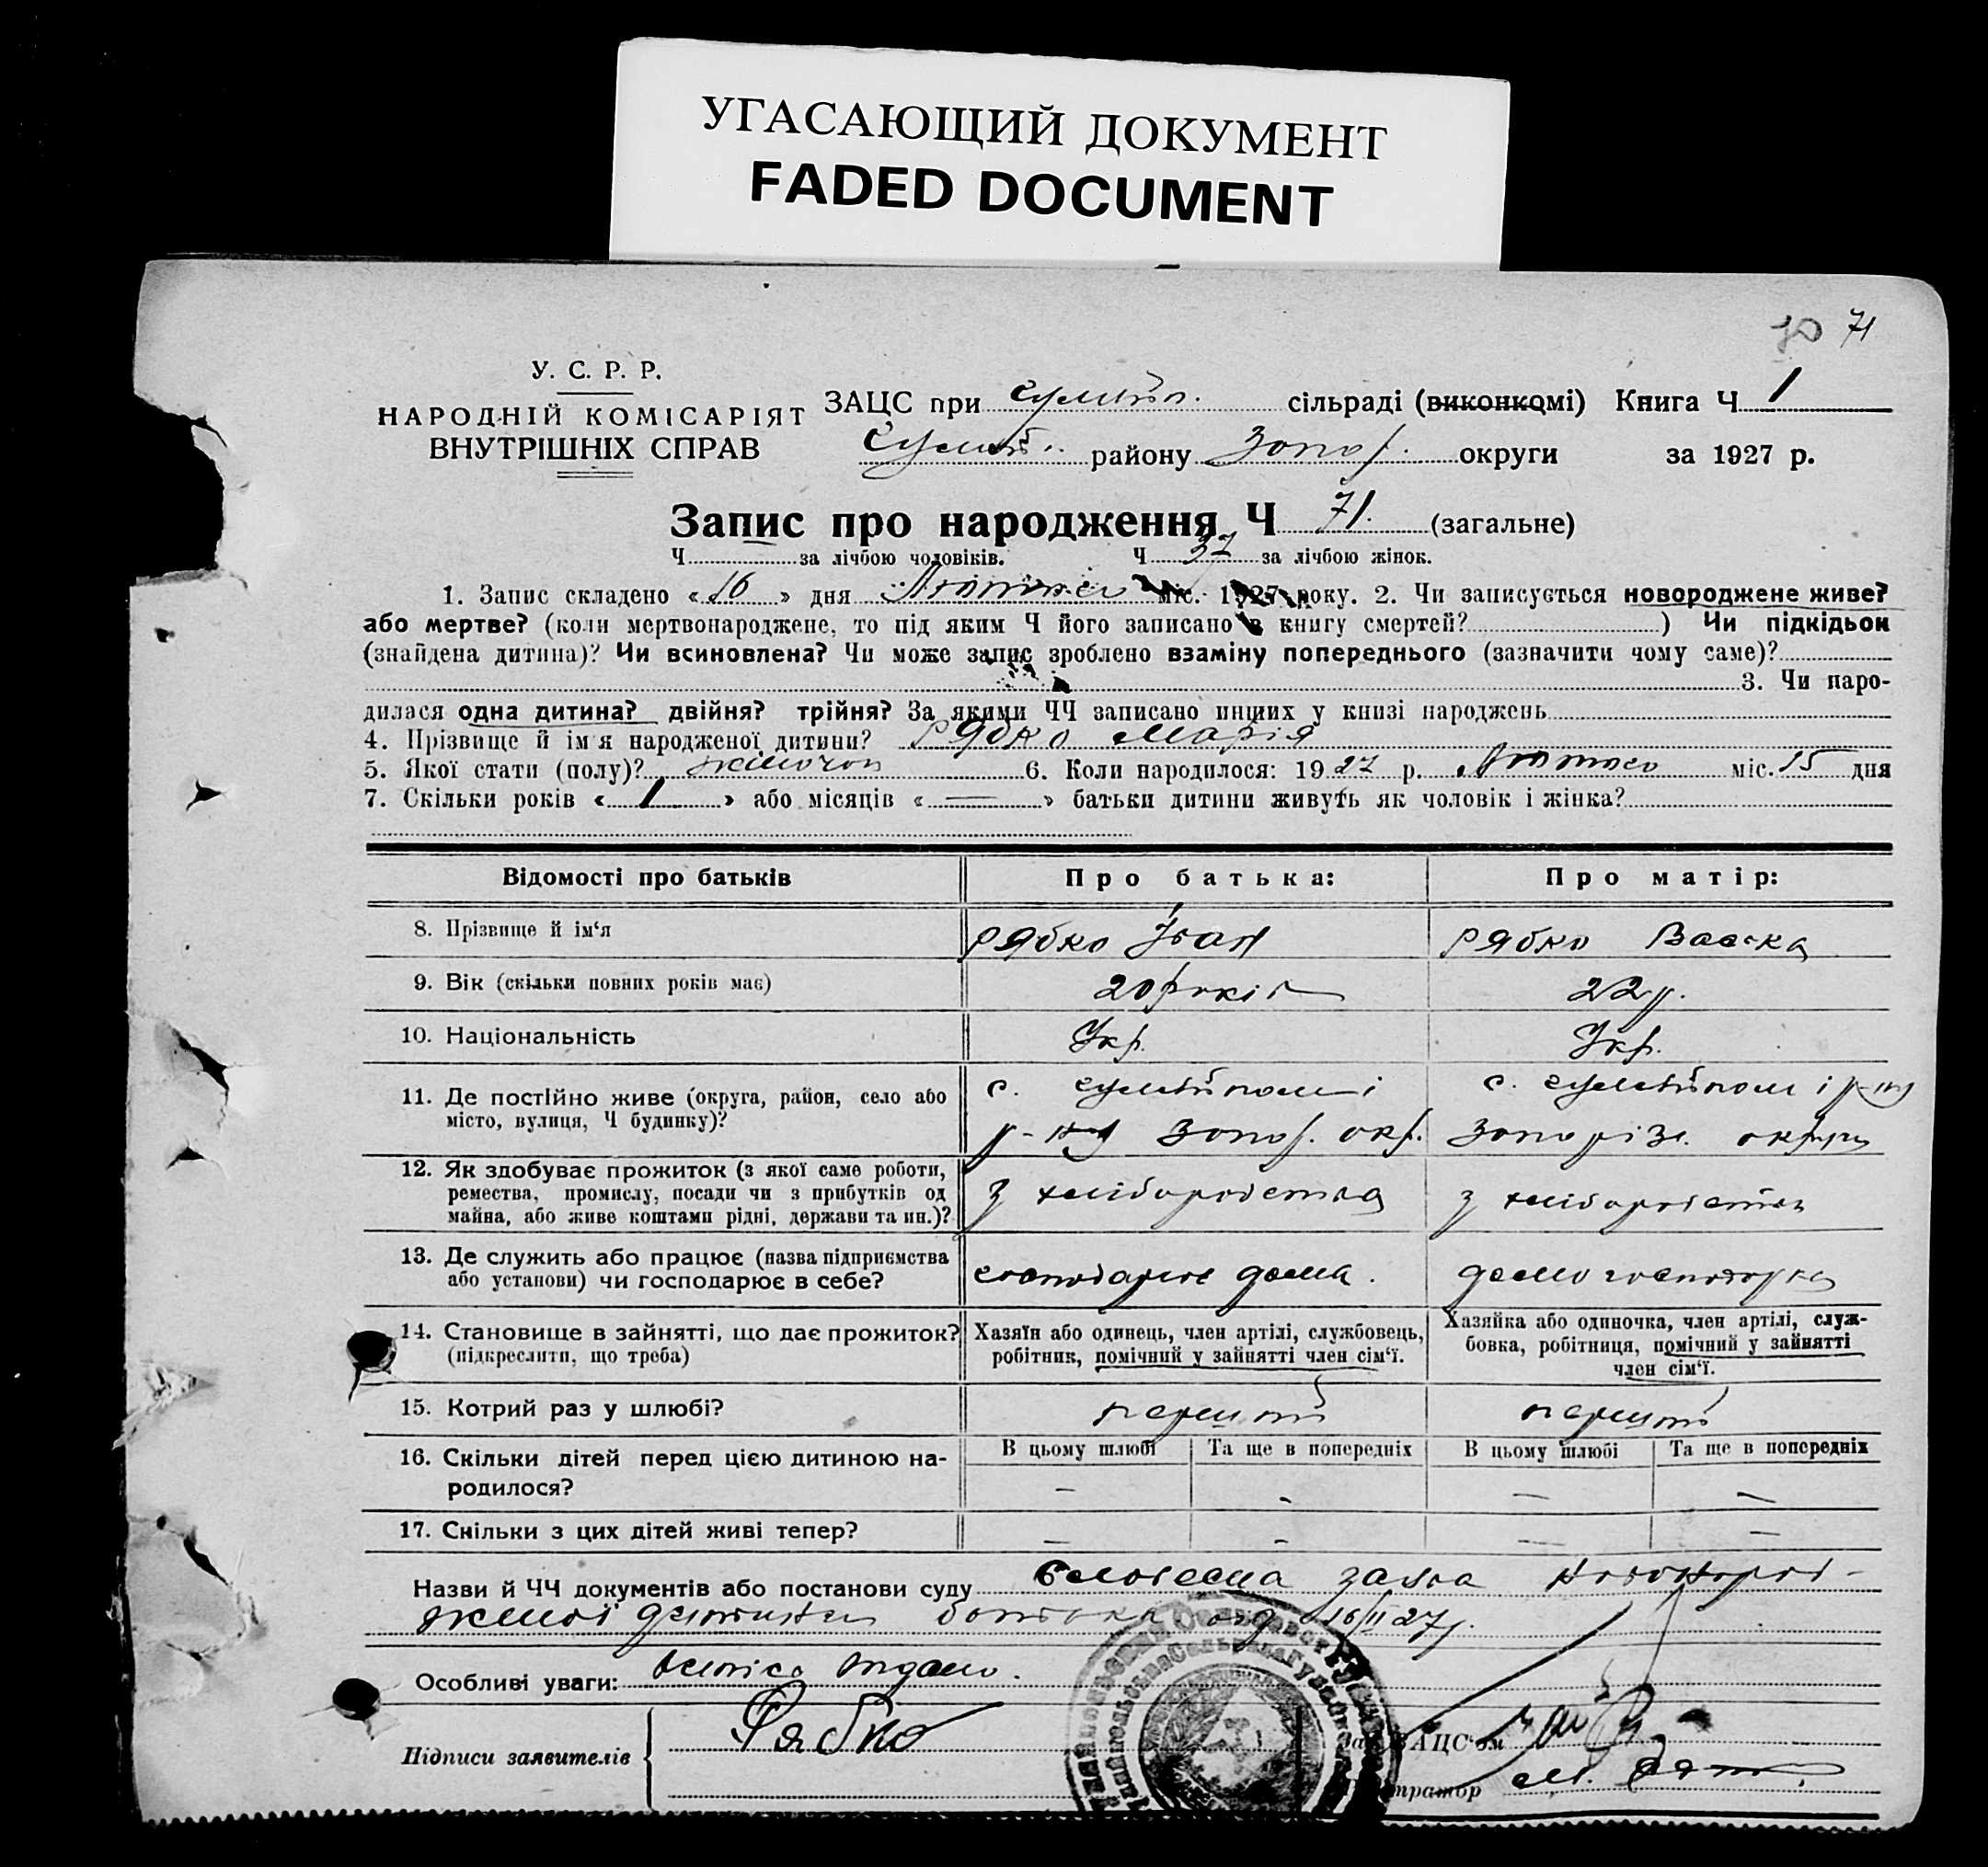 УГАСАЮЩИЙ ДОКУМЕНТ
FADED DOCUMENT
70 71
У. С. Р. Р.
НАРОДНІЙ КОМІСАРІЯТ
ВНУТРІШНІХ СПРАВ
ЗАЦС при сільраді (виконкомі) Книга Ч 1
району Запор. округи за 1927 р.
Запис про народження Ч 71. (загальне)
Ч за лічбою чоловіків. Ч 37 за лічбою жінок.
1. Запис складено « 16 » дня Лютого міс. 1927 року. 2. Чи записується новороджене живе?
або мертве? (коли мертвонароджене, то під яким Ч його записано в книгу смертей? ) Чи підкідьок
(знайдена дитина)? Чи всиновлена? Чи може запис зроблено взаміну попереднього (зазначити чому саме)?
3. Чи наро-
дилася одна дитина? двійня? трійня? За якими ЧЧ записано инших у книзі народжень
4. Прізвище й ім'я народженої дитини? Рябко Марія
5. Якої стати (полу)? жіночої 6. Коли народилося: 1927 р. Лютого міс. 15 дня
7. Скільки років « 1 » або місяців « — » батьки дитини живуть як чоловік і жінка?
Відомості про батьків Про батька: Про матір:
8. Прізвище й ім'я Рябко Іван Рябко
9. Вік (скільки повних років має) 20 років 22 р.
10. Національність Укр. Укр.
11. Де постійно живе (округа, район, село або
місто, вулиця, Ч будинку)?
с. Гуляйполе і
р-ну Запор. окр.
с. Гуляйполе і р-ну
Запоріз. округи
12. Як здобуває прожиток (з якої саме роботи,
ремества, промислу, посади чи з прибутків од
майна, або живе коштами рідні, держави та ин.)?
з хліборобства з хліборобства
13. Де служить або працює (назва підприємства
або установи) чи господарює в себе?
господарює дома. домогосподарка
14. Становище в зайнятті, що дає прожиток?
(підкреслити, що треба)
Хазяїн або одинець, член артілі, службовець,
робітник, помічний у зайнятті член сім'ї.
Хазяйка або одиночка, член артілі, служ-
бовка, робітниця, помічний у зайнятті
член сім'ї.
15. Котрий раз у шлюбі? перший перший
В цьому шлюбі Та ще в попередніх В цьому шлюбі Та ще в попередніх
16. Скільки дітей перед цією дитиною на-
родилося?
— — — —
17. Скільки з цих дітей живі тепер? — — — —
Назви й ЧЧ документів або постанови суду Словесна заява новонарод-
женої дитини батька від 16/II 27 р.
Особливі уваги:
Підписи заявителів Рябко
ЗАЦС'ом